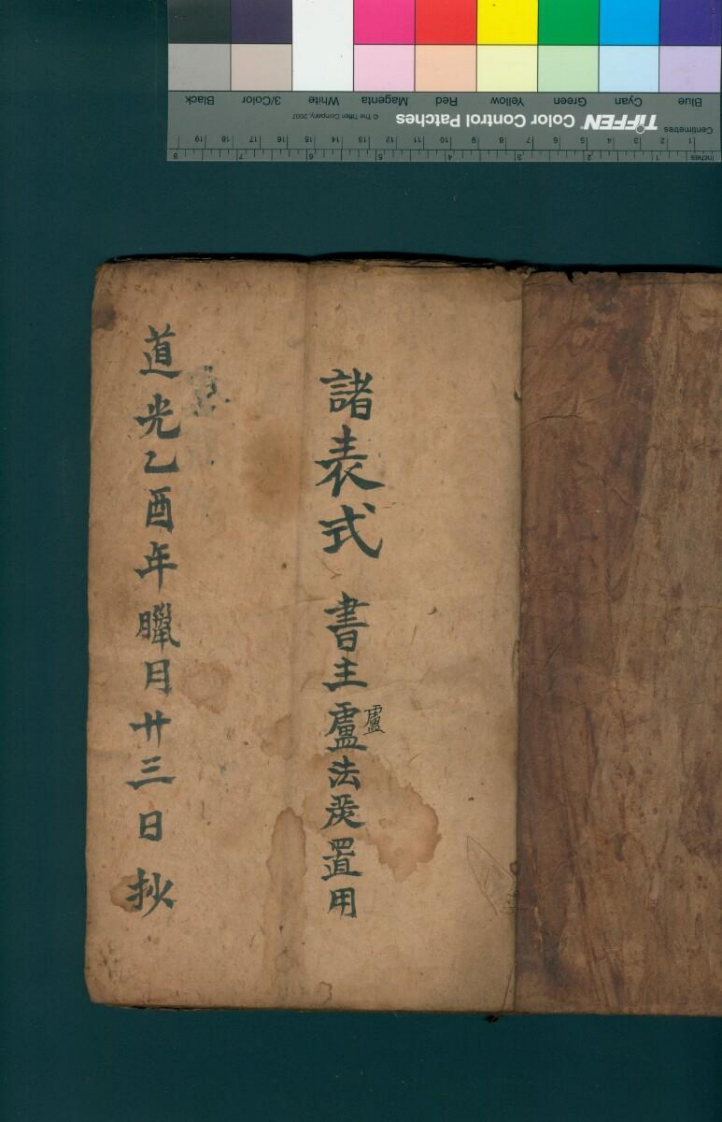 諸表式 書主盧法𤆬置用
盧
道光乙酉年臘月廿三日抄
Blue Cyan Green Yellow Red Magenta White 3/Color Black
TIFFEN Color Control Patches © The Tiffen Company, 2007
Centimetres 1 2 3 4 5 6 7 8 9 10 11 12 13 14 15 16 17 18 19
Inches 1 2 3 4 5 6 7 8